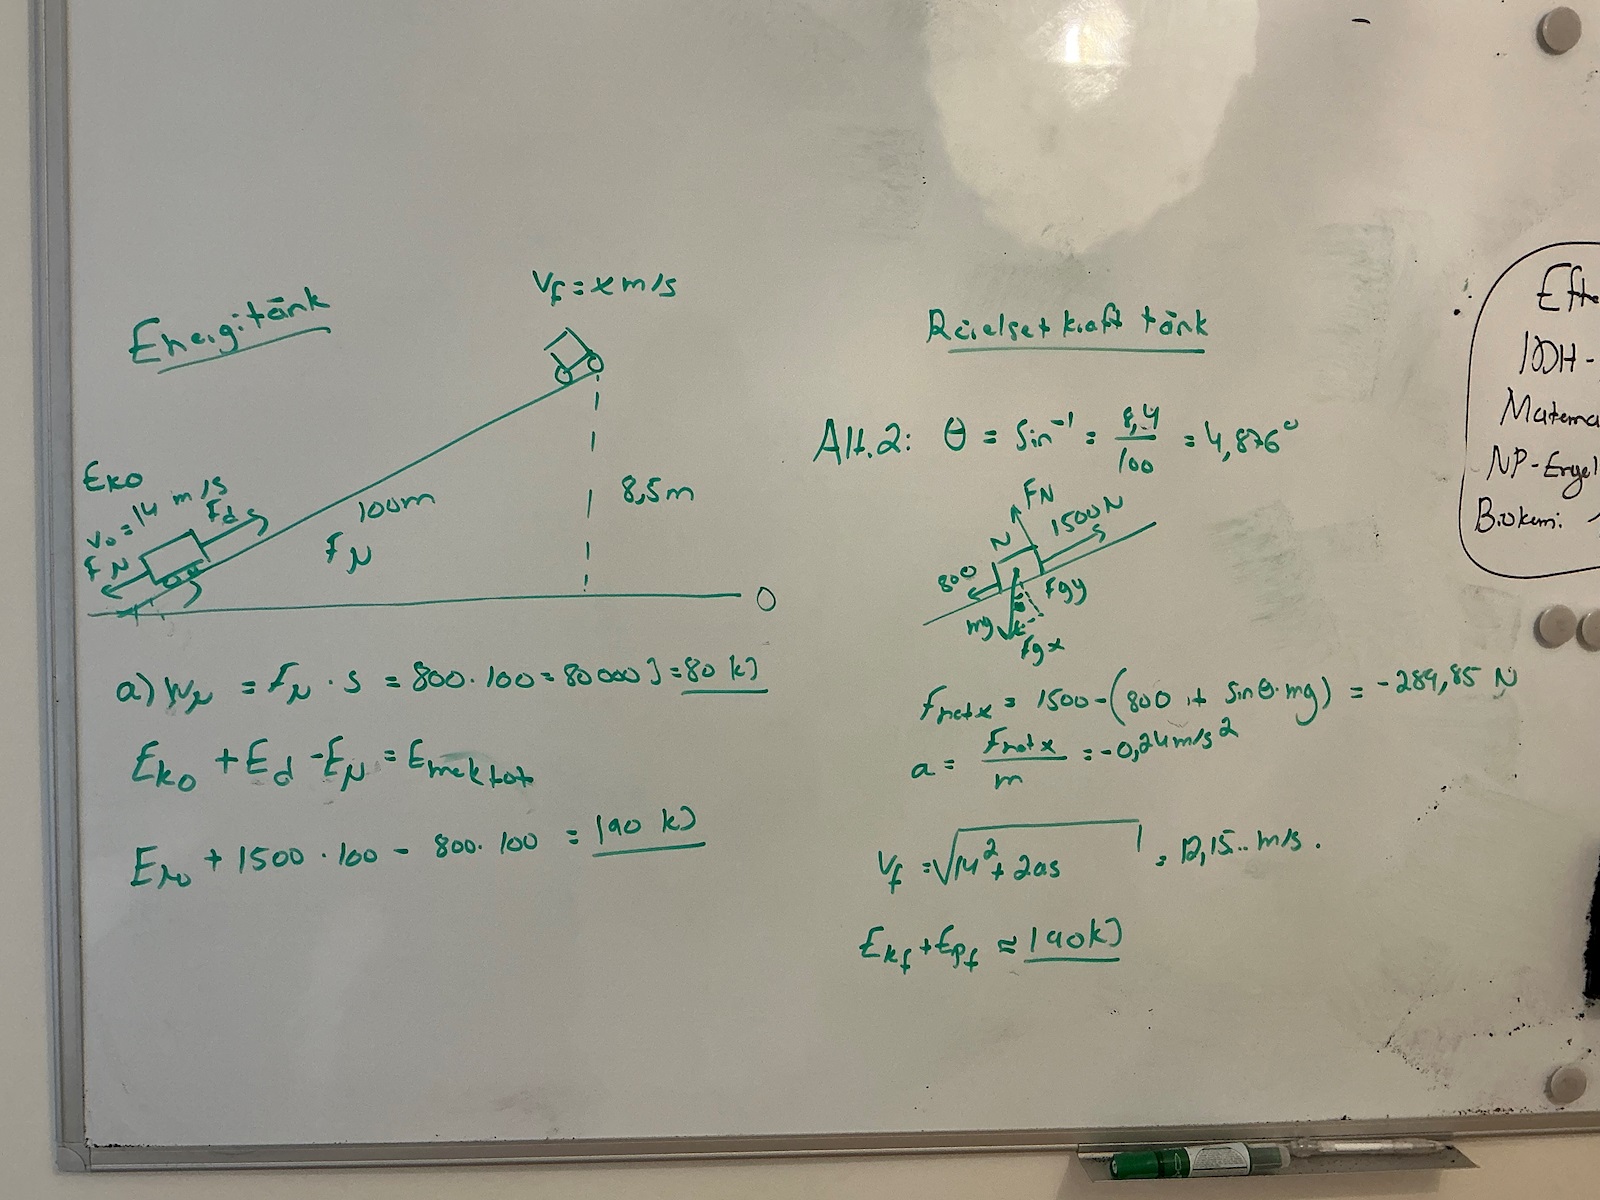 Energitänk
vf = x m/s
Eko
v0 = 14 m/s
Fd
Fμ
100m
Fμ
8,5m
0
a) Wμ = Fμ · s = 800 · 100 = 80000 J = 80 kJ
Eko + Ed - Eμ = Emek tot
Eko + 1500 · 100 - 800 · 100 = 190 kJ
Rörelse + kraft tänk
Alt.2: θ = Sin⁻¹ = 8,4/100 = 4,876°
FN
1500N
N
800
Fgy
mg
Fgx
Fnetx = 1500 - (800 + sinθ · mg) = -289,85 N
a = Fnetx/m = -0,24 m/s²
vf = √14² + 2as = 12,15.. m/s.
Ekf + Epf ≈ 190kJ
IDH -
NP-
Biokemi